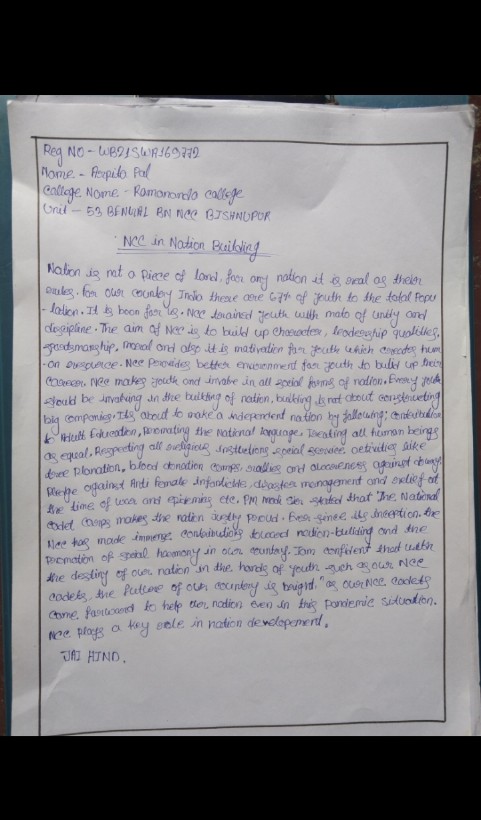 Reg NO - WB21SWA169772
Name - Arpita Pal
College Name - Ramananda College
Unit - 53 BENGAL BN NCC BISHNUPUR
NCC in Nation Building
Nation is not a piece of land, for any nation it is real as their
rules. For our country India there are 67% of youth to the total Popu
-lation. It is boon for us. NCC trained youth with moto of unity and
descipline. The aim of NCC is to build up character, leadership qualities,
sportsmanship, moral and also it is motivation for youth which creates hum
-an resource. NCC Provides better environment for youth to build up their
Carrear. NCC makes youth and invoke in all social forms of nation. Every youth
should be invoking in the building of nation, building is not about constructing
big companies. Its about to make a independent nation by following; Contribution
to Adult Education, Promoting the National language, Treating all human beings
as equal, Respecting all religious institutions, social service activities like
tree Planation, blood donation camps, rallies and awareness against dowry,
Pledge against Anti Female Infanticide, disaster management and relief at
the time of war and epidemics etc. PM Modi Sir stated that "The National
Cadet Corps makes the nation justly proud. Ever since its inception, the
NCC has made immense contributions toward nation-building and the
Promotion of social harmony in our country. I am confident that with
the destiny of our nation in the hands of youth such as our NCC
cadets, the future of our country is bright." as our NCC cadets
come farward to help our nation even in this pandemic situation.
NCC plays a key role in nation developement.
JAI HIND.